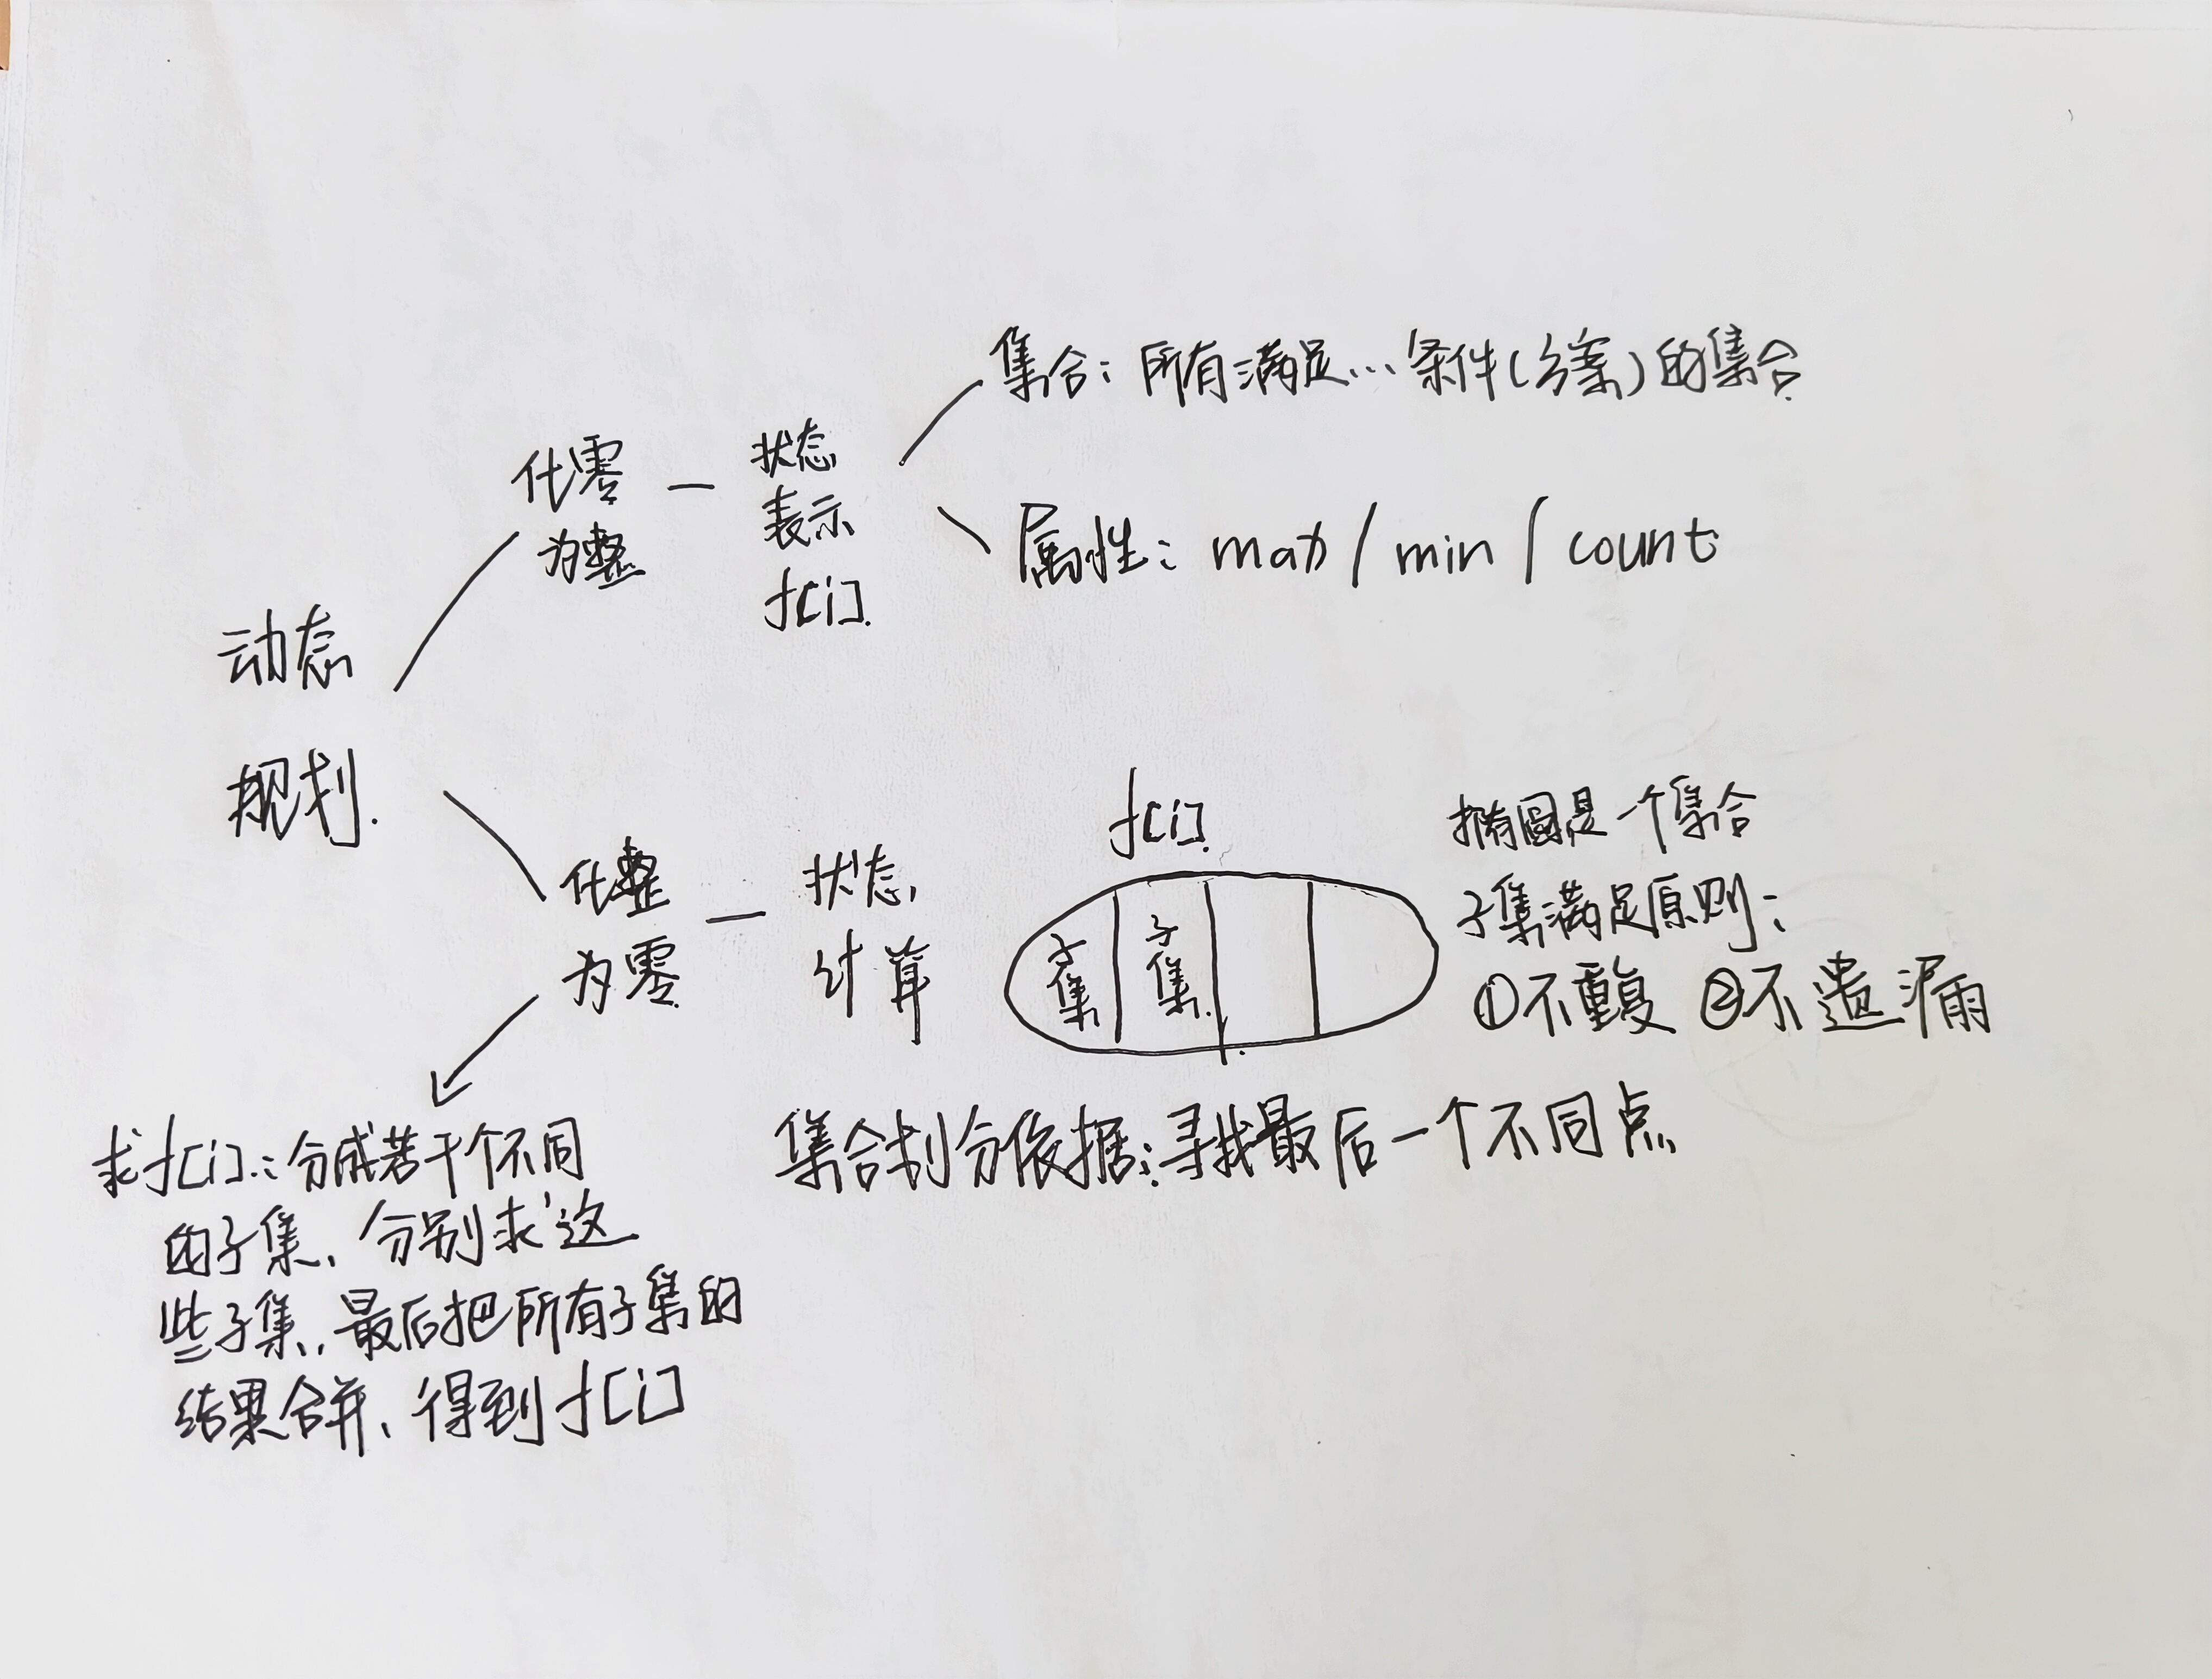 集合：所有满足...条件(方案)的集合
化零
为整
状态
表示
f[i].
属性：max / min / count
动态
规划.
化整
为零
状态
计算
f[i].
子集
子集
椭圆是一个集合
子集满足原则：
①不重复 ②不遗漏
集合划分依据：寻找最后一个不同点
求f[i]：分成若干个不同
的子集、分别求这
些子集，最后把所有子集的
结果合并、得到f[i]